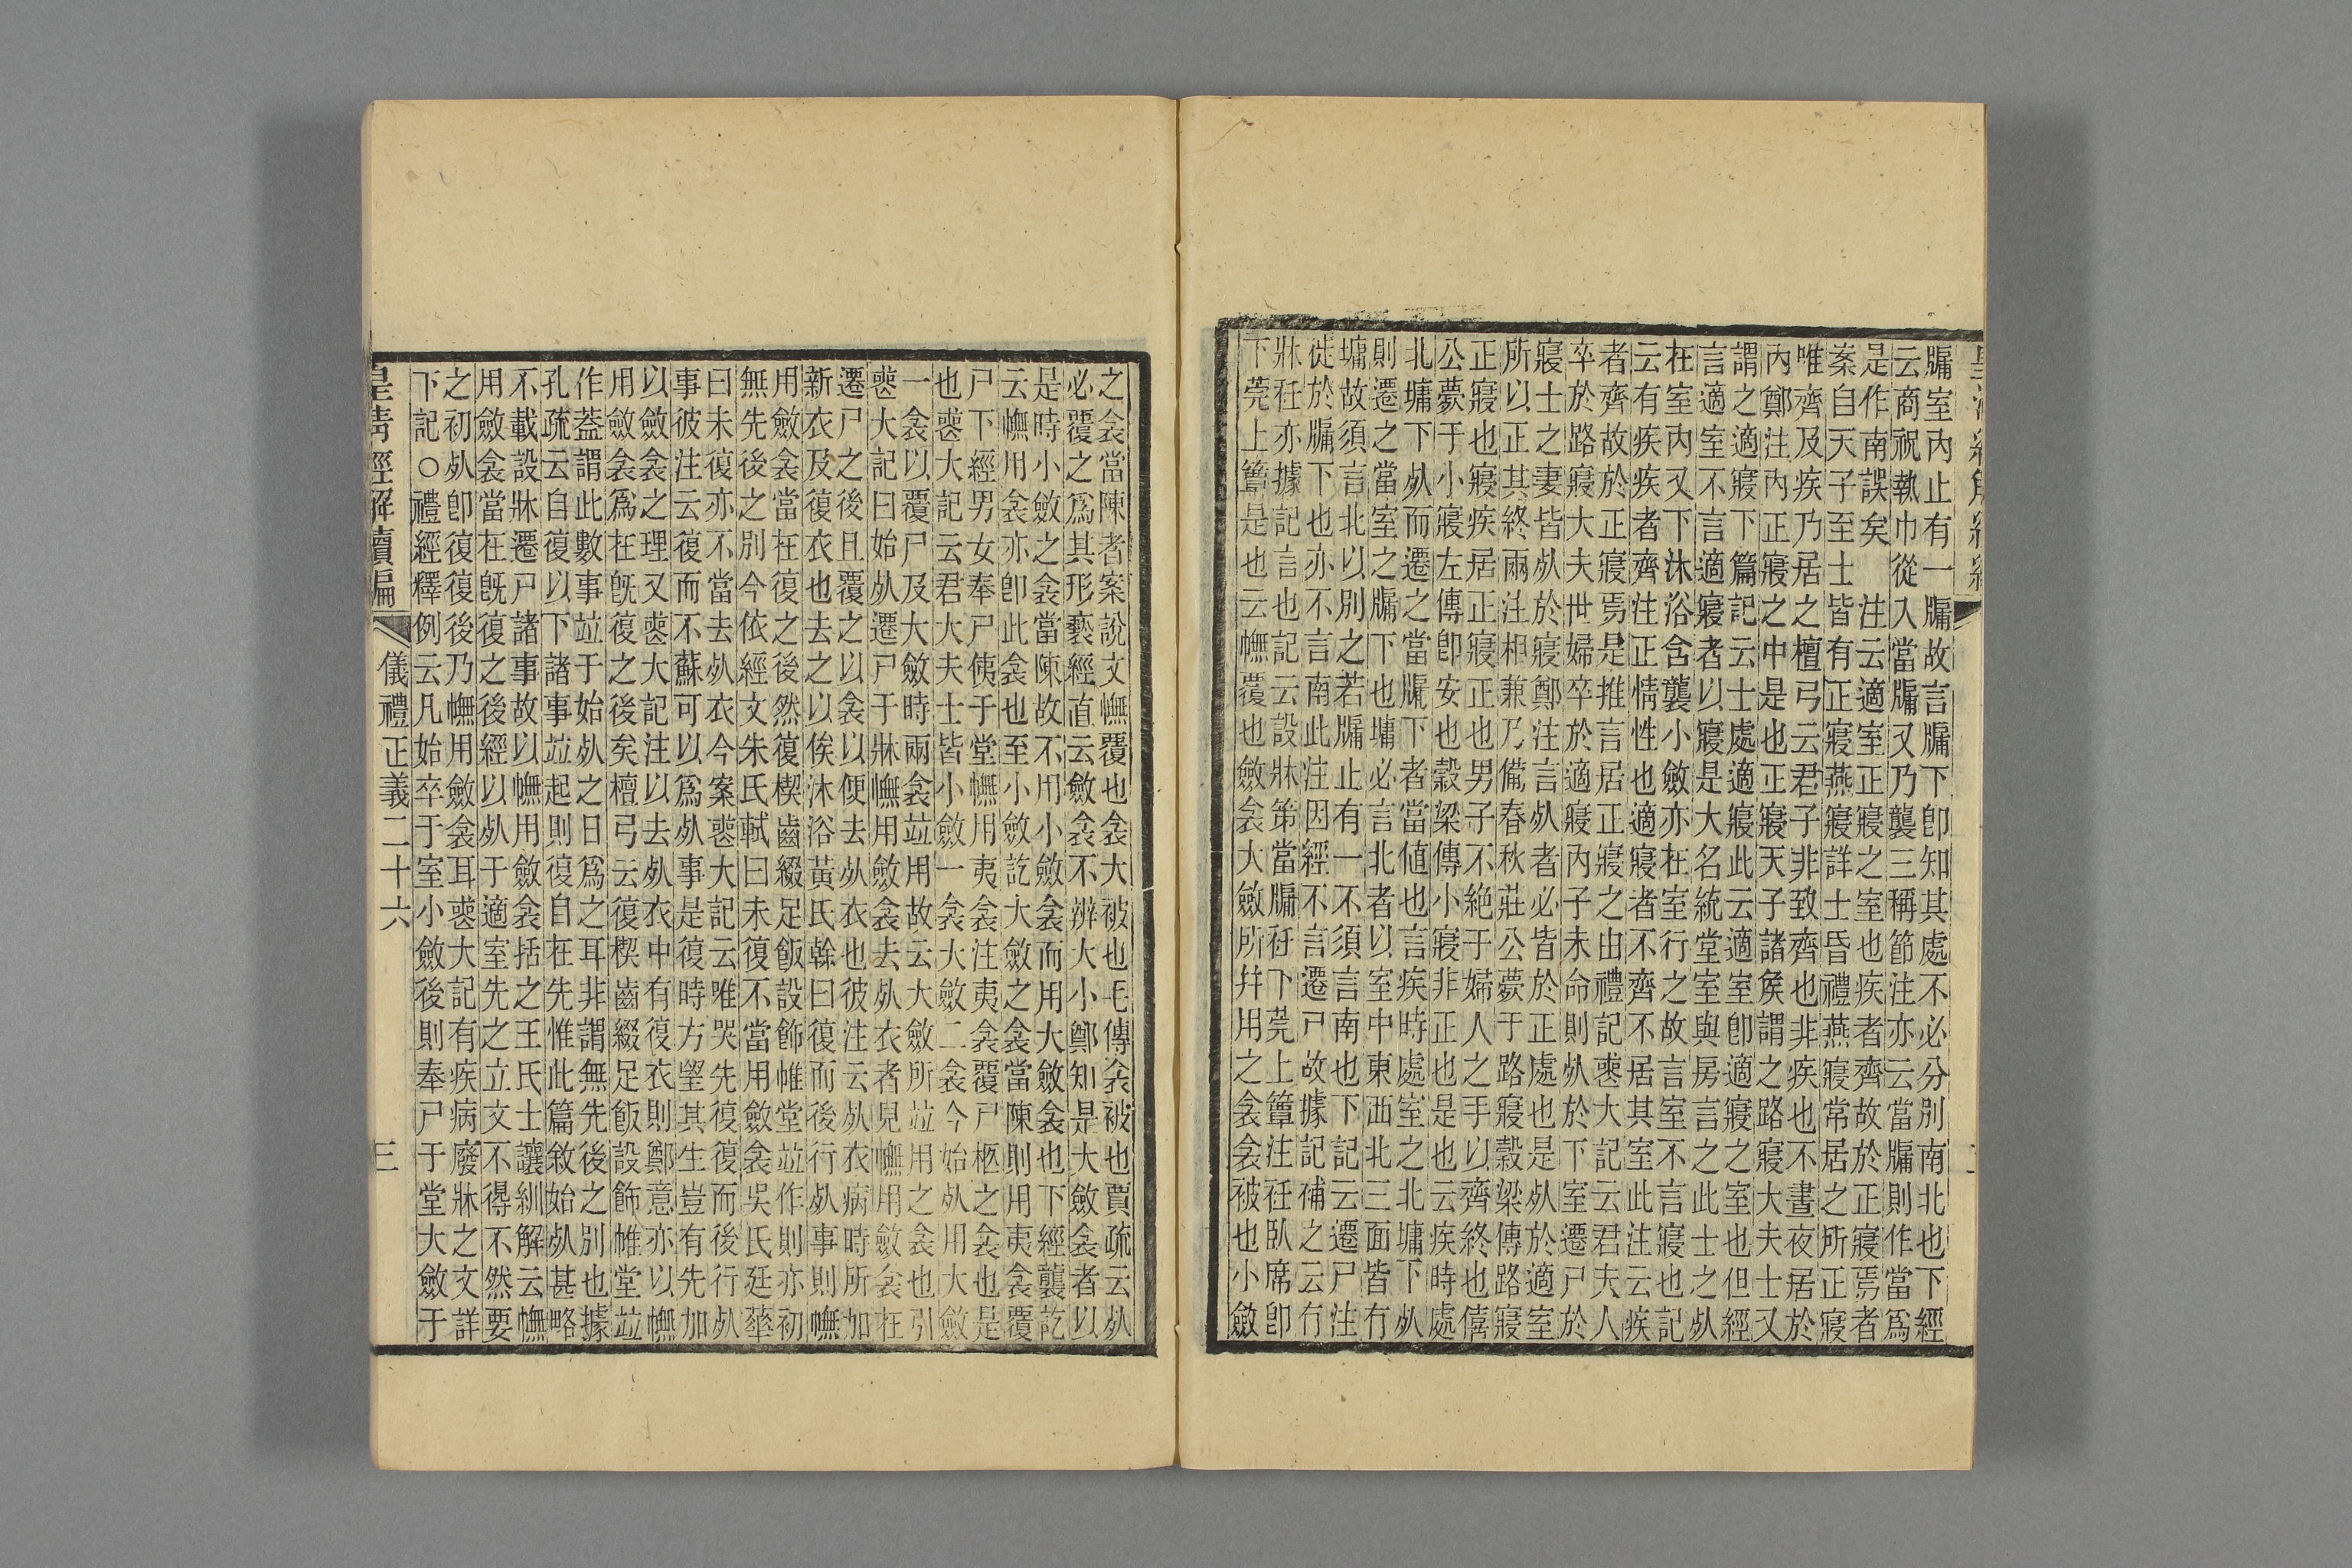 牖室內止有一牖故言牖下卽知其處不必分別南北也下經
云商祝執巾從入當牖又乃襲三稱節注亦云當牖則作當爲
是作南誤矣　注云適室正寢之室也疾者齊故於正寢焉者
案自天子至士皆有正寢燕寢詳士昏禮燕寢常居之所正寢
唯齊及疾乃居之檀弓云君子非致齊也非疾也不晝夜居於
內鄭注內正寢之中是也正寢天子諸矦謂之路寢大夫士又
謂之適寢下篇記云士處適寢此云適室卽適寢之室也但經
言適室不言適寢者以寢是大名統堂室與房言之此士之死
在室內又下沐浴含襲小斂亦在室行之故言室不言寢也記
云有疾疾者齊注正情性也適寢者不齊不居其室此注云疾
者齊故於正寢焉是推言居正寢之由禮記喪大記云君夫人
卒於路寢大夫世婦卒於適寢內子未命則死於下室遷尸於
寢士之妻皆死於寢鄭注言死者必皆於正處也是死於適室
所以正其終兩注相兼乃備春秋莊公薨于路寢穀梁傳路寢
正寢也寢疾居正寢正也男子不絕于婦人之手以齊終也僖
公薨于小寢左傳卽安也穀梁傳小寢非正也是也云疾時處
北墉下死而遷之當牖下者當値也言疾時處室之北墉下死
則遷之當室之牖下也墉必言北者以室中東西北三面皆有
墉故須言北以別之若牖止有一不須言南也下記云遷尸注
徙於牖下也亦不言南此注因經不言遷尸故據記補之云有
牀衽亦據記言也記云設牀笫當牖衽下莞上簟注衽臥席卽
下莞上簟是也云幠覆也斂衾大斂所幷用之衾衾被也小斂
之衾當陳者案說文幠覆也衾大被也毛傳衾被也賈疏云死
必覆之爲其形褻經直云斂衾不辨大小鄭知是大斂衾者以
是時小斂之衾當陳故不用小斂衾而用大斂衾也下經襲訖
云幠用衾亦卽此衾也至小斂訖大斂之衾當陳則用夷衾覆
尸下經男女奉尸侇于堂幠用夷衾注夷衾覆尸柩之衾也是
也喪大記云君大夫士皆小斂一衾大斂二衾今始死用大斂
一衾以覆尸及大斂時兩衾竝用故云大斂所竝用之衾也引
喪大記曰始死遷尸于牀幠用斂衾去死衣者見幠用斂衾在
遷尸之後且覆之以衾以便去死衣也彼注云死衣病時所加
新衣及復衣也去之以俟沐浴黃氏榦曰復而後行死事則幠
用斂衾當在復之後然復楔齒綴足飯設飾帷堂竝作則亦初
無先後之別今依經文朱氏軾曰未復不當用斂衾吳氏廷華
曰未復亦不當去死衣今案喪大記云唯哭先復復而後行死
事彼注云復而不蘇可以爲死事是復時方望其生豈有先加
以斂衾之理又喪大記注以去死衣中有復衣則鄭意亦以幠
用斂衾爲在旣復之後矣檀弓云復楔齒綴足飯設飾帷堂竝
作蓋謂此數事竝于始死之日爲之耳非謂無先後之別也據
孔疏云自復以下諸事竝起則復自在先惟此篇敘始死甚略
不載設牀遷尸諸事故以幠用斂衾括之王氏士讓紃解云幠
用斂衾當在旣復之後經以死于適室先之立文不得不然要
之初死卽復復後乃幠用斂衾耳喪大記有疾病廢牀之文詳
下記○禮經釋例云凡始卒于室小斂後則奉尸于堂大斂于
皇清經解續編　儀禮正義二十六　三